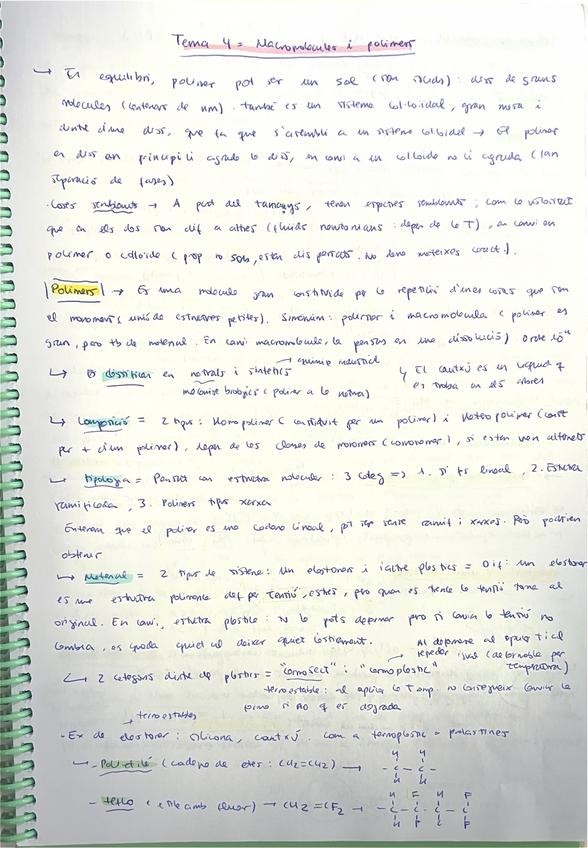 Tema 4 = Macromolecules i polimers
→ En equilibri, polimer pot ser un sol (són fluids): diss de grans
molecules (centenars de nm). també es un sistema col·loidal, gran mesura i
dintre d'una diss, que fa que s'assembli a un sistema colloidal → El polimer
en diss en principi li agrada la diss, en canvi a un colloide no li agrada (fan
separació de fases)
· Coses semblants → A part del tamanys, tenen espectres semblants; com la velocitat
que en els dos són dif a altres (fluids newtonians: depen de la T), en canvi en
polimer o colloide (prop no sols, estan dispersats. No tenen mateixes caract.).
Polimers → Es una molecula gran constituida per la repetició d'unes coses que son
el monomers (unió de estructures petites). Sinonim: polimer i macromolecula (polimer es
gran, pero tb de material. En canvi macromolecula, la penses en una dissolució)
→ Es classifican en naturals i sintetics → quimica industrial
molecules biologics (polimer a la natura)
y El cautxú es un liquid q
es troba en els arbres
→ Composició = 2 tipus: Homopolimer (constituit per un polimer) i Heteropolimer (const
per + d'un polimer), depen de les classes de monomers (comonomer), si estan van alternats
→ tipologia = Pensat en estructura molecular: 3 categ => 1. Si es lineal, 2. Estructura
ramificada, 3. Polimers tipus xarxa
Entenem que el polimer es una cadena lineal, pot ser sense ramif i xarxes. Però podriem
obtenir
→ Material = 2 tipus de sistema: Un elastomers i l'altre plastics = Dif: un elastomer
es una estructura polimerica def per tensió, estres, pero quan es trenca la tensió torna al
original. En canvi, estructura plastica: No la pots deformar pero si canvia la tensió no
cambia, es queda quiet al deixar aquest estirament.
Al deformar al aplicar T i al
refredar igual (deformable per
temperatura)
→ 2 categories dintre de plastics = "termosect" i "termoplastic"
termoestable: al aplicar la Temp. no consegueix canviar la
forma si no q es degrada
→ termoestables
- Ex de elastomer: silicona, cautxú. com a termoplastic = poliestirens
→ - Polietilé (cadena de etens: CH2=CH2) →
H H
- C - C -
H H
- teflo (etile amb fluor) → CH2=CF2 →
H F H F
- C - C - C - C
H F H F